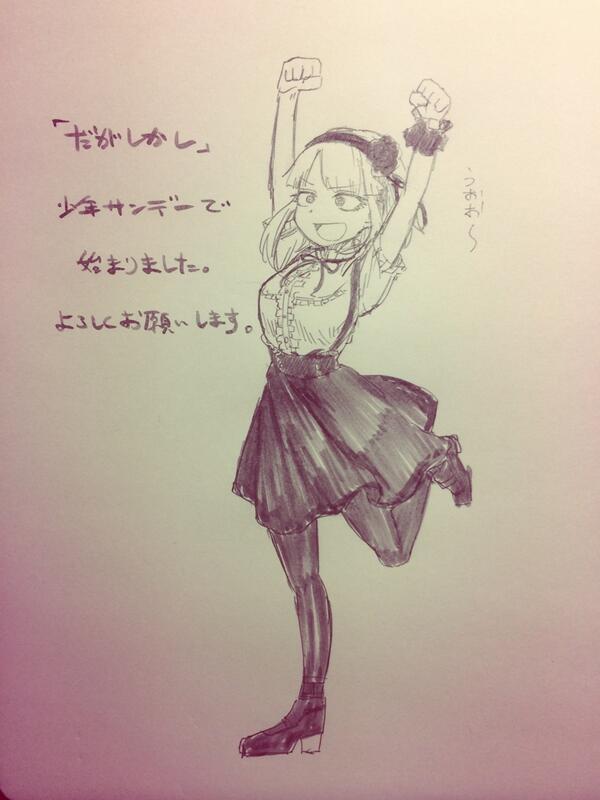 「だがしかし」
少年サンデーで
始まりました。
よろしくお願いします。
うおお〜